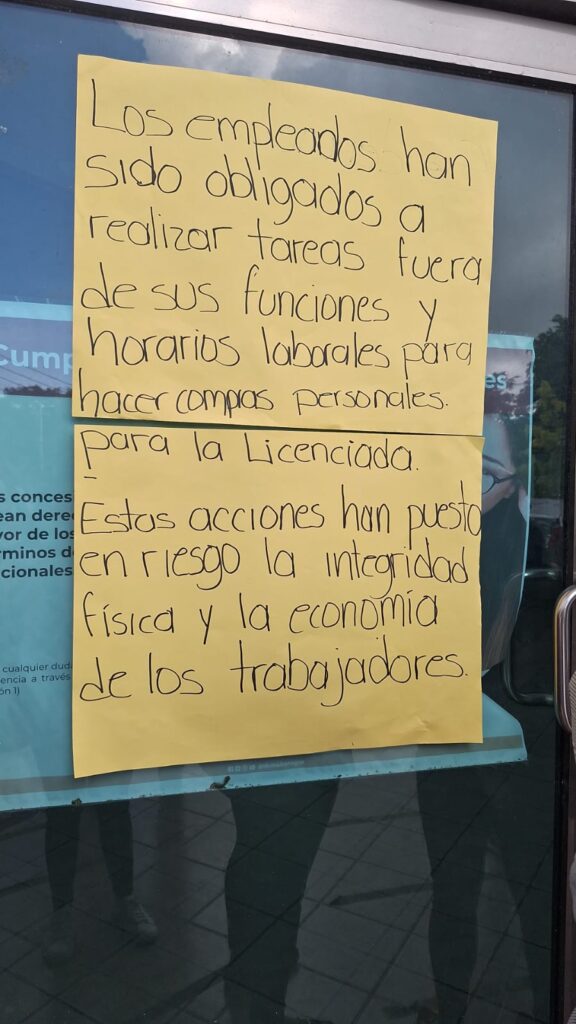 Los empleados han
sido obligados a
realizar tareas fuera
de sus funciones y
horarios laborales para
hacer compras personales.
para la Licenciada.
Estas acciones han puesto
en riesgo la integridad
física y la economía
de los trabajadores.
Cump
es
s conces
ean dere
vor de los
rminos d
cionales
cualquier duda
encia a través
ón 1)